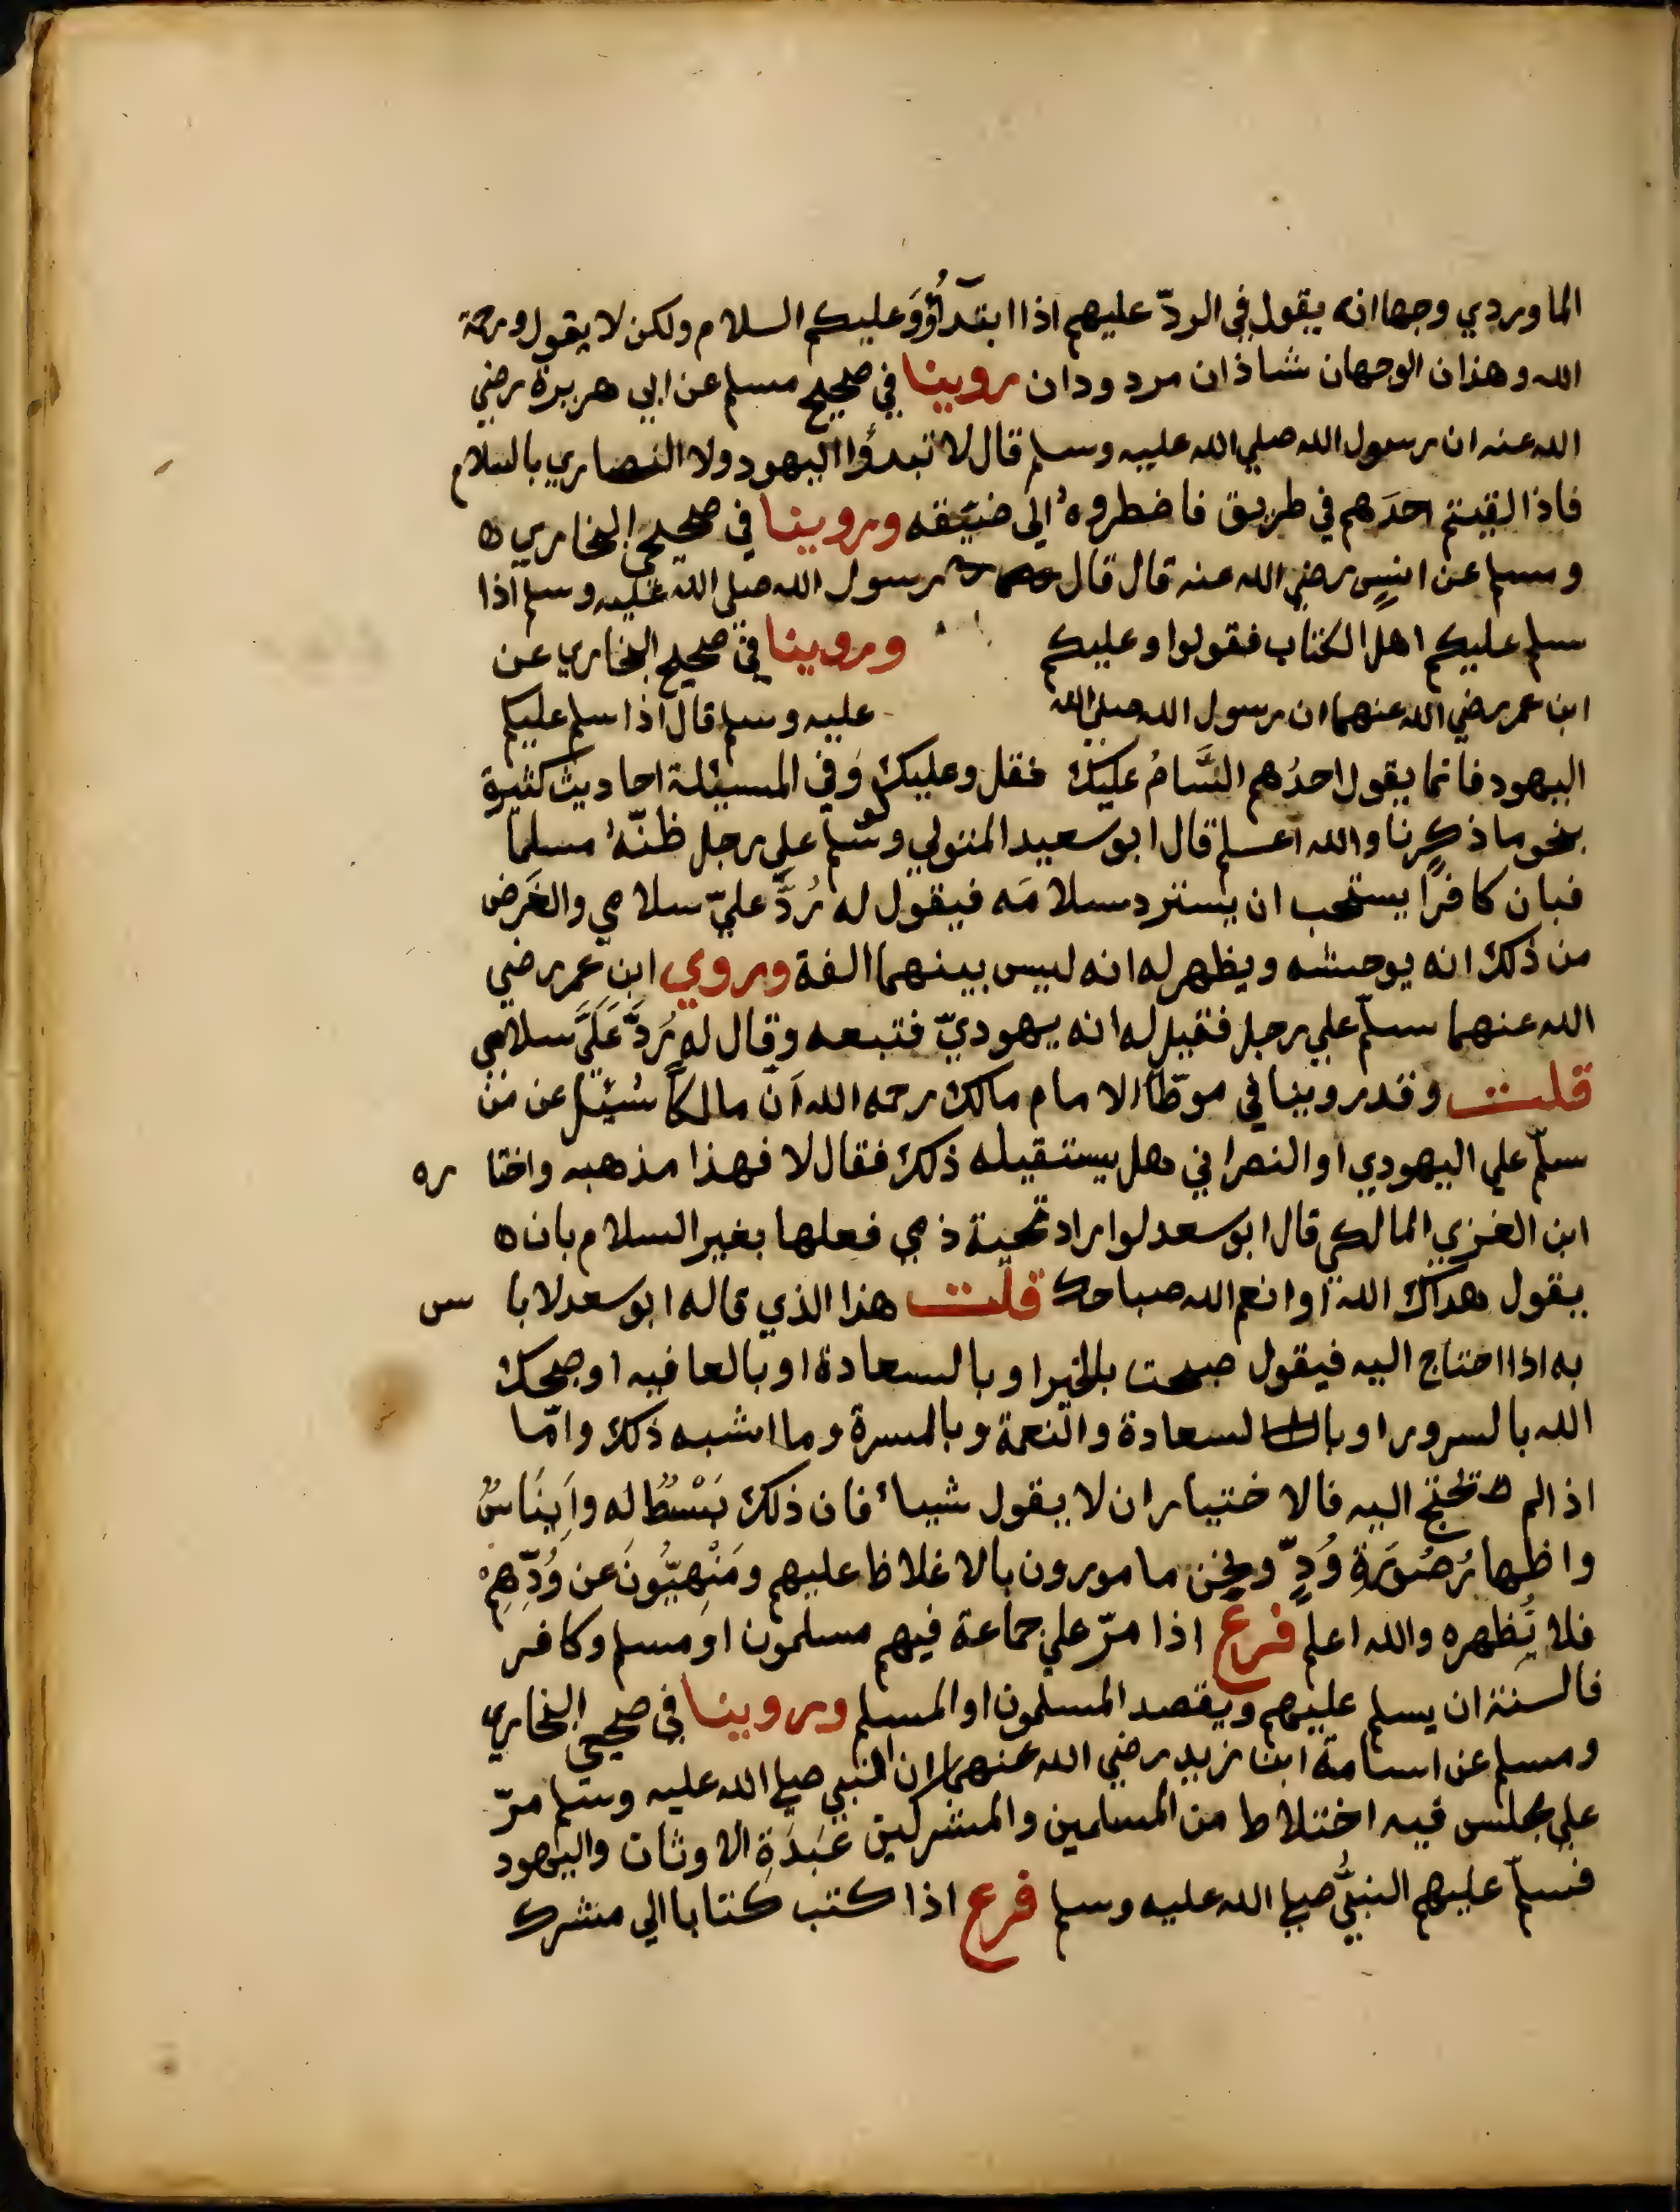 الماوردي وجها انه يقول في الردّ عليهم اذا ابتدَأُوْ وَعليكم السلام ولكن لا يقول ورحمة
الله وهذان الوجهان شاذان مردودان روينا في صحيح مسلم عن ابي هريرة رضي
الله عنه ان رسول الله صلي الله عليه وسلم قال لا تبدؤا اليهود ولا النصاري بالسلام
فاذا لقيتم احدَهم في طريق فاضطروهُ الي ضيّقه وروينا في صحيحي البخاري ه
ومسلم عن انسٍ رضي الله عنه قال قال رسول الله صلي الله عليه وسلم اذا
سلم عليكم اهل الكتاب فقولوا وعليكم وروينا في صحيح البخاري عن
ابن عمر رضي الله عنهما ان رسول الله صلي الله عليه وسلم قال اذا سلم عليكم
اليهود فانما يقول احدُهم السَّامُ عليك فقل وعليك وَفي المسئلة احاديث كثيرة
بنحو ما ذكرنا والله اعلم قال ابو سعيد المتولي ولو سلم علي رجل ظنّهُ مسلما
فبان كافرًا يستحب ان يسترد سلامَه فيقول له رُدَّ عليّ سلامي والغَرض
من ذلك انه يوحشه ويظهر له انه ليس بينهما الفة وروي ابن عمر رضي
الله عنهما سلّم علي رجل فقيل له انه يهوديّ فتبعه وقال له رُدَّ عَلَيَّ سلامي
قلت وقد روينا في موطّا الامام مالك رحمه الله اَنّ مالكاً سُئِل عن مَن
سلّم علي اليهودي او النصراني هل يستقيله ذلك فقال لا فهذا مذهبه واختا ره
ابن العزي المالكي قال ابو سعد لو اراد تحية ذمي فعلها بغير السلام بان ه
يقول هداك الله او انعم الله صباحك قلت هذا الذي قاله ابو سعد لا با س
به اذا احتاج اليه فيقول صبحت بالخير او بالسعادة او بالعافيه او صبحك
الله بالسرور او بالسعادة والنعمة وبالمسرة وما اشبه ذلك وامّا
اذا لم يحْتَج اليه فالاختيار ان لا يقول شيأ فان ذلك بَسْطٌ له وَاِينَاسٌ
واظهارُ صُورَةِ وُدٍّ ونحن مامورون بالاغلاظ عليهم ومَنْهِيّوُنَ عن وُدِّهِمْ
فلا نُظهره والله اعلم فرع اذا مرّ علي جماعة فيهم مسلمون او مسلم وكافر
فالسنة ان يسلم عليهم ويقصد المسلمون او المسلم وروينا في صحيحي البخاري
ومسلم عن اسامة ابن زيد رضي الله عنهما ان النبي صلي الله عليه وسلم مرّ
علي مجلس فيه اختلاط من المسلمين والمشركين عَبَدَةِ الاوثان واليهود
فسلّم عليهم النبيُّ صلي الله عليه وسلم فرع اذا كتب كتابا الي مشرك